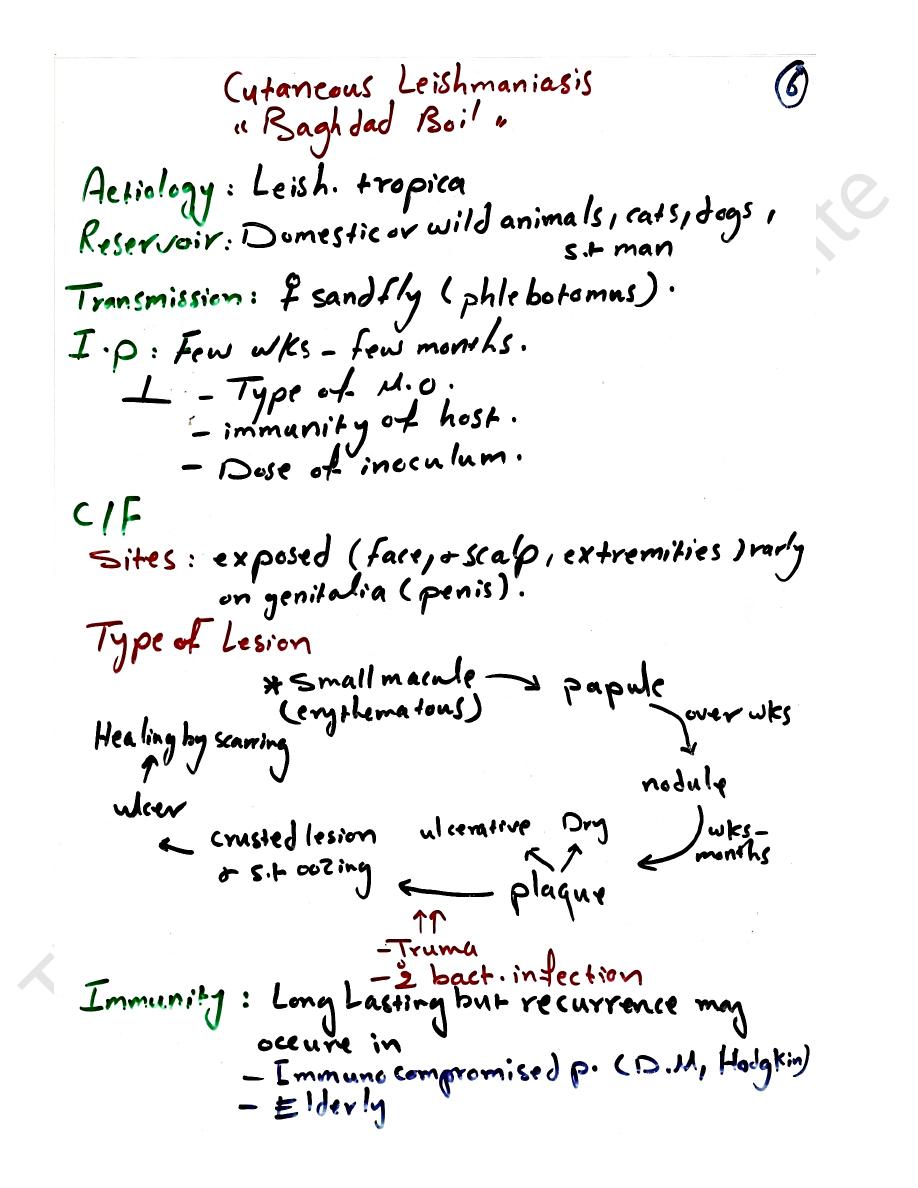 Cutaneous Leishmaniasis
6
"Baghdad Boil"
Aetiology: Leish. tropica
Reservoir: Domestic or wild animals, cats, dogs,
s.t man
Transmission: ♀ sandfly (phlebotomus).
I.p: Few wks - few months.
⊥ - Type of M.O.
- immunity of host.
- Dose of inoculum.
C/F
Sites: exposed (face, & scalp, extremities) rarly
on genitalia (penis).
Type of Lesion
* Small macule → papule
(erythematous)
over wks
Healing by scarring
nodule
ulcer
wks-
months
ulcerative Dry
crusted lesion
& s.t oozing
plaque
↑↑
- Truma
- 2° bact. infection
Immunity: Long Lasting but recurrence may
occure in
- Immuno compromised p. (D.M, Hodgkin)
- Elderly